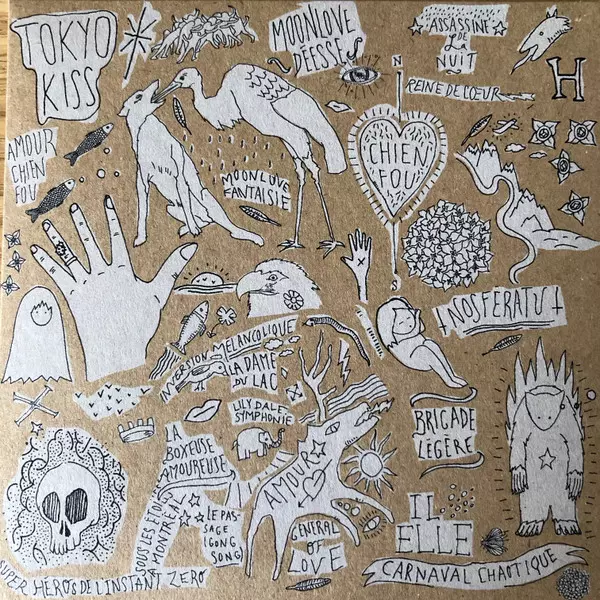 TOKYO
KISS
MOONLOVE
DÉESSE
ASSASSINE
DE
LA
NUIT
H
REINE DE CŒUR
N
AMOUR
CHIEN
FOU
CHIEN
FOU
MOONLOVE
FANTAISIE
X
S
NOSFERATU
INVERSION MÉLANCOLIQUE
LA DAME
DU LAC
LILY DALE
SYMPHONIE
LA
BOXEUSE
AMOUREUSE
SOUS LES ÉTOILES
À MONTRÉAL
LE PAS-
SAGE
(GONG
SONG)
AMOUR
GÉNÉRAL
OF
LOVE
BRIGADE
LÉGÈRE
IL
ELLE
CARNAVAL CHAOTIQUE
SUPER HÉROS DE L'INSTANT ZERO